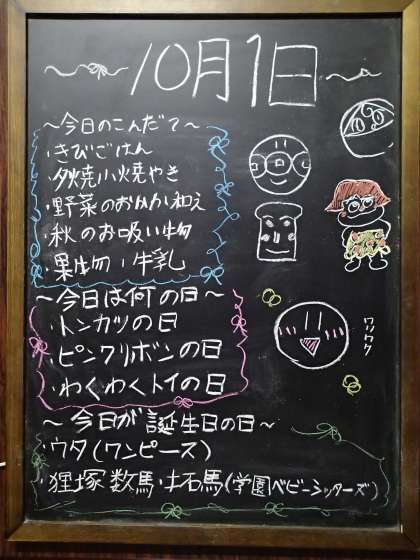 10月1日
～今日のこんだて～
・きびごはん
・夕焼け小焼やき
・野菜のおかか和え
・秋のお吸い物
・果物・牛乳
～今日は何の日～
・トンカツの日
・ピンクリボンの日
・わくわくトイの日
ワクワク
～今日が誕生日の日～
・ウタ(ワンピース)
・狸塚数馬・拓馬(学園ベビーシッターズ)